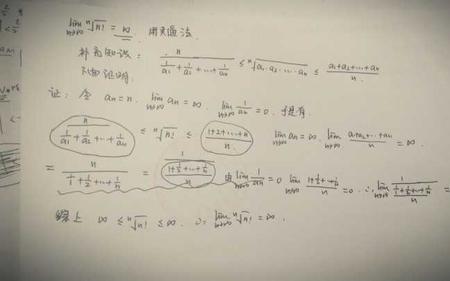 lim n→∞ ⁿ√n! = ∞ 用夹逼法.
补充知识: n / (1/a₁ + 1/a₂ + … + 1/aₙ) ≤ ⁿ√(a₁·a₂…aₙ) ≤ (a₁+a₂+…+aₙ)/n.
证: 令 aₙ=n. lim n→∞ aₙ = ∞. lim n→∞ 1/aₙ = 0. 于是有.
n / (1/a₁ + 1/a₂ + … + 1/aₙ) ≤ ⁿ√n! ≤ (1+2+…+n)/n lim n→∞ aₙ = ∞. lim n→∞ (a₁+a₂+…+aₙ)/n = ∞.
= n / (1/1 + 1/2 + … + 1/n) = 1 / ((1+1/2+…+1/n)/n) 由 lim n→∞ 1/aₙ = 0 lim n→∞ (1+1/2+…+1/n)/n = 0. ∴ lim n→∞ 1 / ((1+1/2+…+1/n)/n) =
综上 ∞ ≤ ⁿ√n! ≤ ∞. ∴ lim n→∞ ⁿ√n! = ∞.